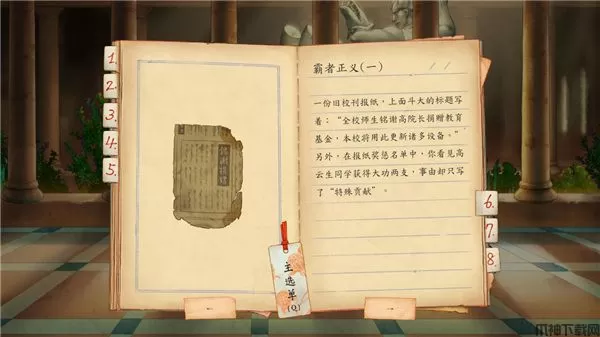 1.
2.
3.
4.
5.
霸者正义(一)
一份旧校刊报纸，上面斗大的标题写
着：“全校师生铭谢高院长捐赠教育
基金，本校将用此更新诸多设备。”
另外，在报纸奖惩名单中，你看见高
云生同学获得大功两支，事由却只写
了“特殊贡献”。
6.
7.
8.
主选单
(Q)
爪神下载网